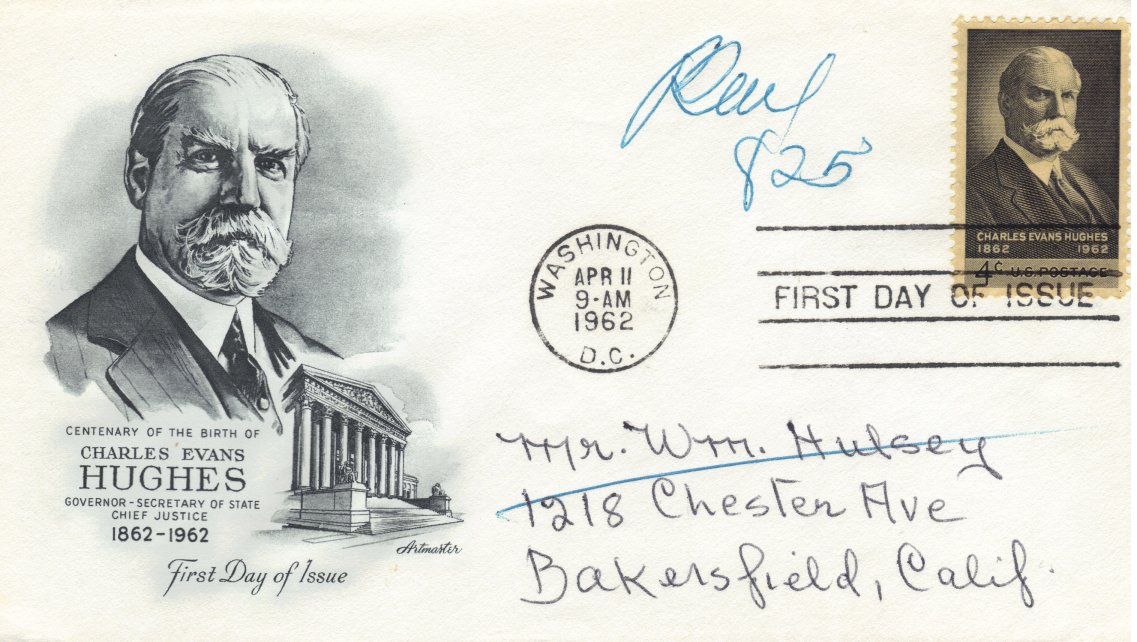 825
CHARLES EVANS HUGHES
1862 1962
4c U.S. POSTAGE
WASHINGTON
APR 11
9-AM
1962
D.C.
FIRST DAY OF ISSUE
Mr. Wm. Hulsey
1218 Chester Ave
Bakersfield, Calif.
CENTENARY OF THE BIRTH OF
CHARLES EVANS
HUGHES
GOVERNOR-SECRETARY OF STATE
CHIEF JUSTICE
1862-1962
Artmaster
First Day of Issue